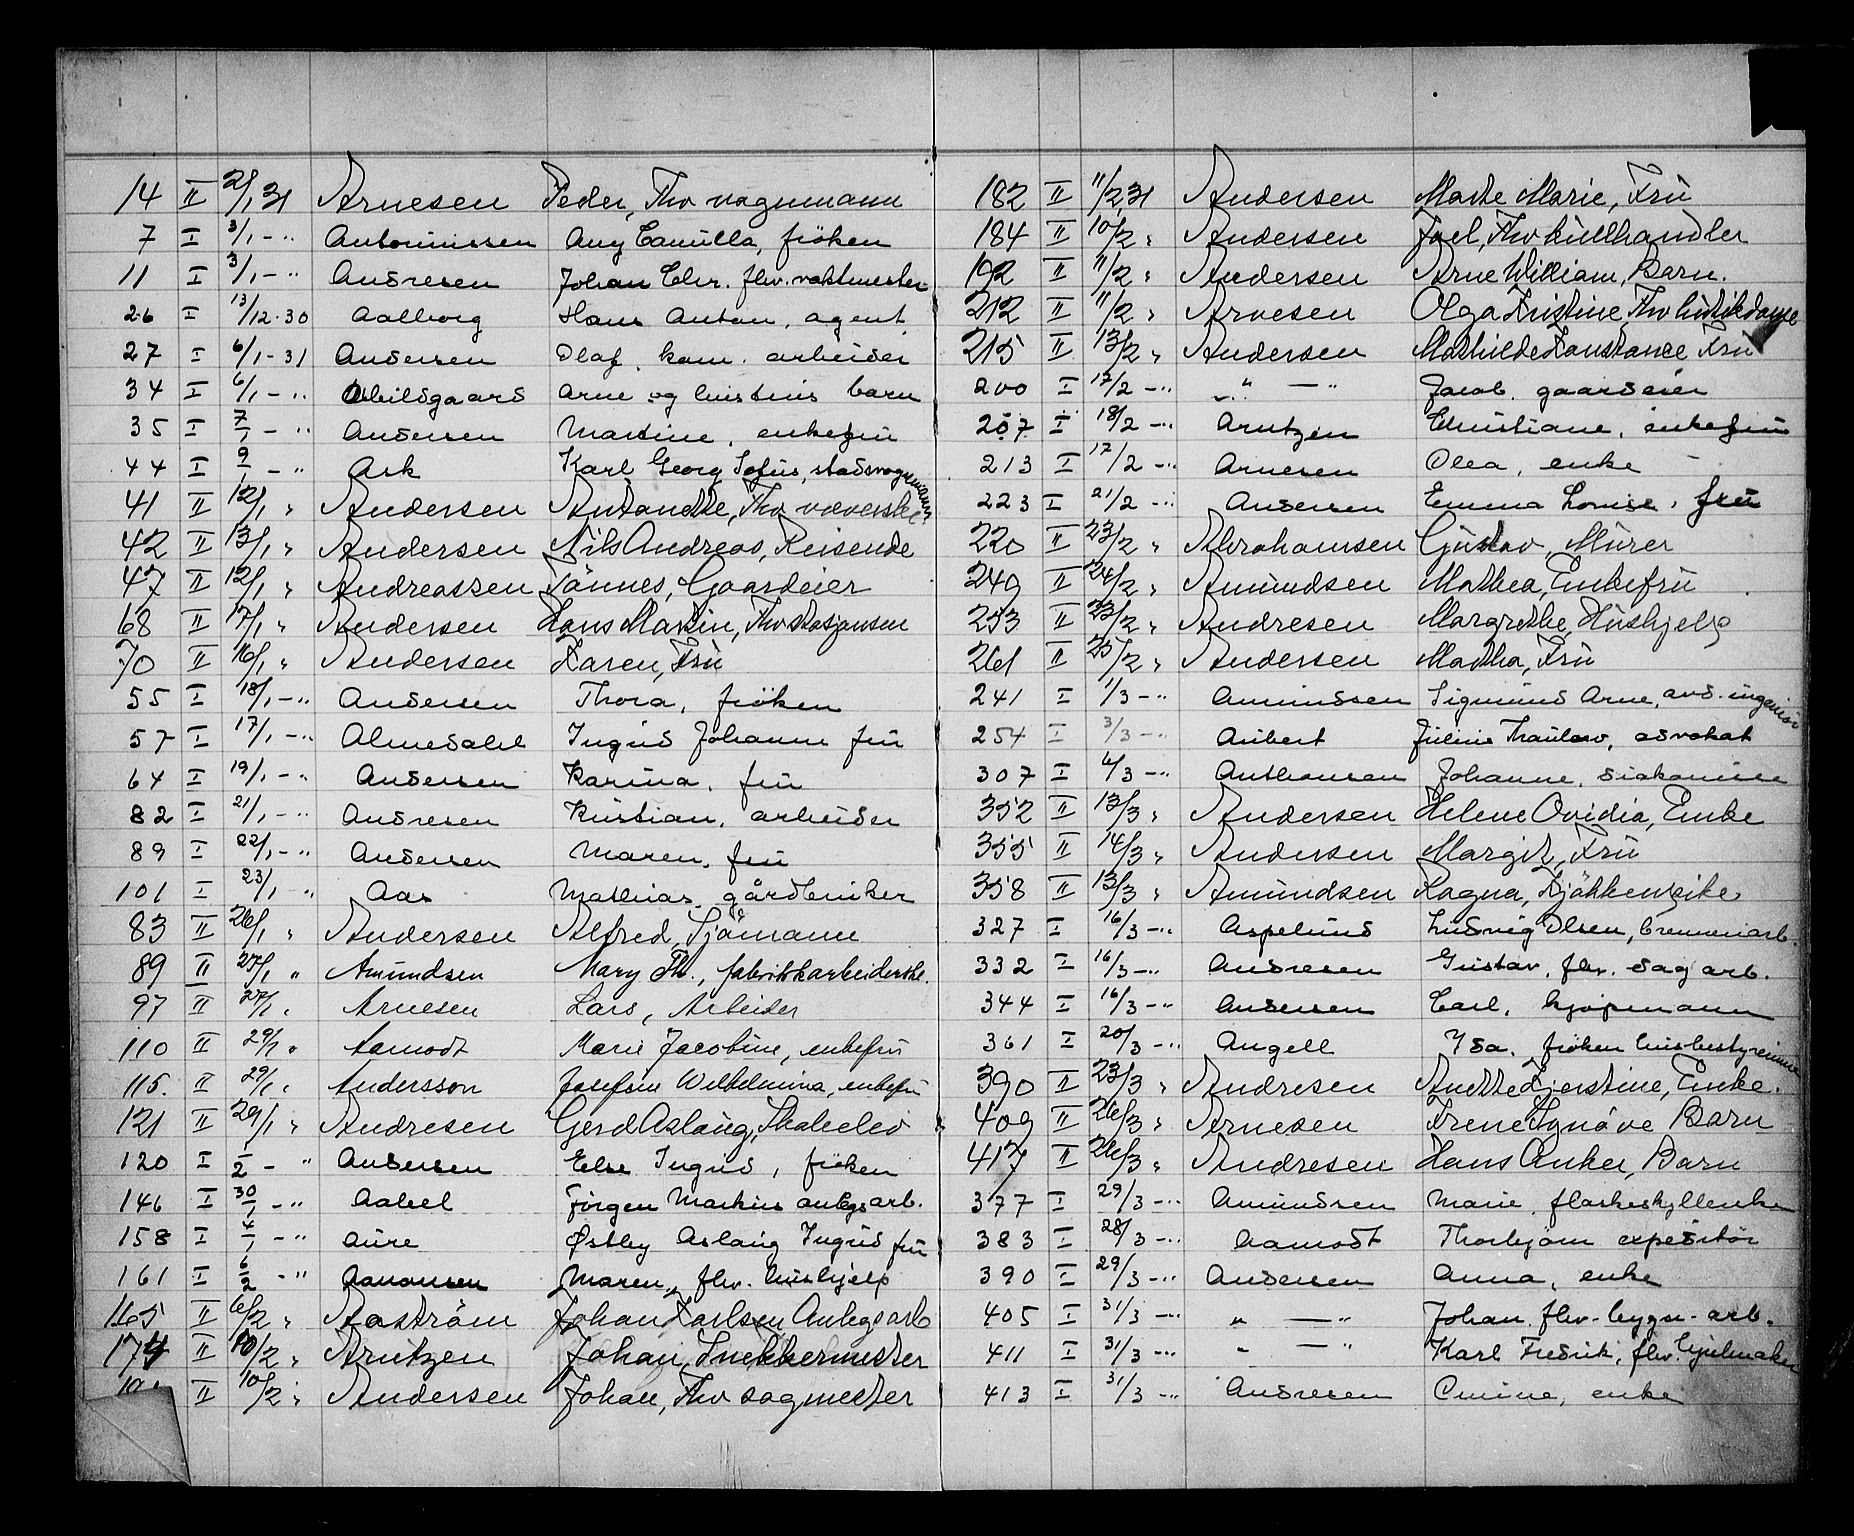 14 II 2/1 31 Arnesen Peder, Fhv vognmann
7 I 3/1 - " Antonnissen Any Camilla, fröken
11 I 3/1 - " Andresen Johan Chr. fhv. vaktmester
26 I 13/12-30 Aalborg Hans Anton, agent
27 I 6/1-31 Andersen Olaf, kom. arbeider
34 I 6/1 - " Abildsgaard Arne og hustrus barn
35 I 7/1 - " Andersen Martine, enkefru
44 I 9/1 - " Ask Karl Georg Sofus, stadsvognmann
41 II 12/1 " Andersen Antonette, Fhv væverske
42 II 13/1 " Andersen Nils Andreas, Reisende
47 II 12/1 " Andreassen Tönnes, Gaardeier
68 II 17/1 " Andersen Hans Martin, Fhv
70 II 16/1 " Andersen Karen, Fru
55 I 18/1 - " Andersen Thora, fröken
57 I 17/1 - " Almedahl Ingrid Johanne fru
64 I 19/1 - " Andersen Karina, fru
82 I 21/1 - " Andresen Kristian, arbeider
89 I 22/1 - " Andersen Maren, fru
101 I 23/1 " Aas Mathias, gårdbruker
83 II 26/1 " Andersen Alfred, Sjömann
89 II 27/1 " Amundsen Mary Th., fabrikkarbeiderske.
97 II 27/1 " Arnesen Lars, Arbeider
110 II 29/1 " Aamodt Marie Jacobine, enkefru
115. II 29/1 " Andersson Josefine Wilhelmina, enkefru
121 II 29/1 " Andresen Gerd Aslaug, Skoleelev
120 I 1/2 - " Andersen Else Ingrid, fröken
146 I 30/1 - " Aabel Jörgen Markus anlegsarb.
158 I 4/1 - " Aure Østby Aslaug Ingrid fru
161 I 6/2 - " Aanonsen Maren, fhv. hushjelp
165 II 6/2 " Aaström Johan Karlsen Anlegsarb
174 II 10/2 " Arntzen Johan, Snekkermester
II 10/2 " Andersen Johan, Fhv sagmester
182 II 11/2 31 Andersen Marte Marie, Fru
184 II 10/2 " Andersen Joel, Fhv kullhandler
192 II 11/2 " Andersen Arne William, Barn.
212 II 11/2 " Arnesen Olga Kristine, Fhv butikdame
215 II 13/2 " Andersen Mathilde Konstance Fru
200 I 17/2 - " " — " Jacob, gaardeier
207 I 18/2 - " Arntzen Christiane, enkefru
213 I 17/2 - " Arnesen Olea, enke
223 I 21/2 - " Andersen Emma Lovise, fru
220 II 23/2 " Abrahamsen Gustav, Murer
249 II 24/2 " Amundsen Mathea, Enkefru
253 II 23/2 " Andresen Margrethe, Hushjelp
261 II 25/2 " Andersen Martha, Fru
241 I 1/3 - " Amundsen Sigmund Arne, avd. ingeniör
254 I 3/3 - " Aubert Julius Thaulow, advokat
307 I 6/3 - " Anthonsen Johanne, diakonisse
352 II 13/3 " Andersen Helene Ovidia, Enke
355 II 14/3 " Andersen Margit, Fru
358 II 13/3 " Amundsen Ragna, Kjökkenpike
327 I 16/3 - " Aspelund Ludvig Olsen, brenneriarb.
332 I 16/3 - " Andresen Gustav, fhv. sagarb.
344 I 16/3 - " Andersen Carl, kjøpmann
361 I 20/3 - " Angell Ida, fröken husbestyrerinne
390 II 23/3 " Andresen Anette Kjerstine, Enke.
409 II 26/3 " Arnesen Irene Synöve Barn
417 II 26/3 " Andresen Hans Anker, Barn
377 I 29/3 - " Amundsen Marie, flaskeskyllerske
383 I 28/3 - " Aamodt Thorbjörn expeditör
390 I 29/3 - " Andersen Anna, enke
405 I 31/3 - " " — " Johan, fhv. bygn. arb.
411 I 31/3 - " " — " Karl Fredrik, fhv. hjulmaker
413 I 31/3 - " Andresen Omine, enke